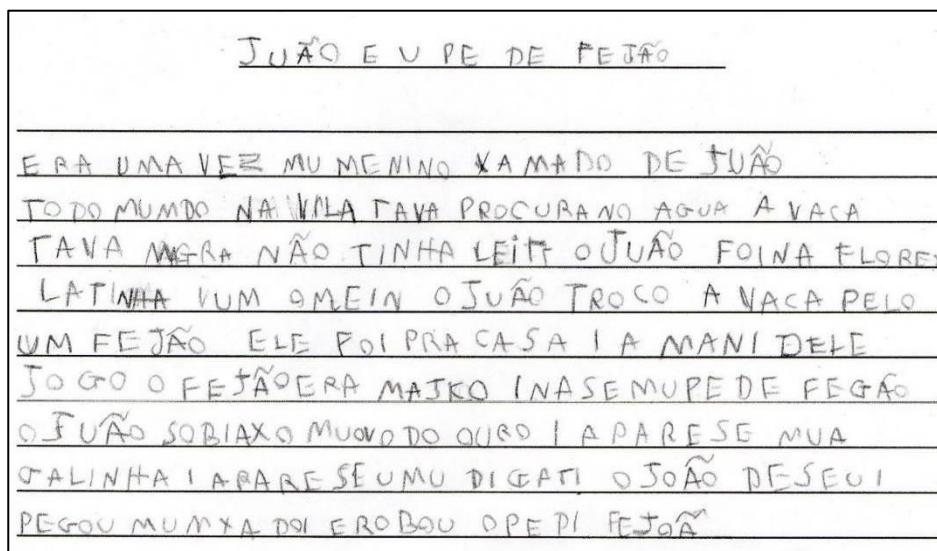 JUÃO E U PE DE FEJÃO
ERA UMA VEZ MU MENINO XAMADO DE JUÃO
TODO MUMDO NA VILA TAVA PROCURANO AGUA A VACA
TAVA MGRA NÃO TINHA LEITE O JUÃO FOI NA FLORES
LA TINHA VUM OMEIN O JUÃO TROCO A VACA PELO
UM FEJÃO ELE FOI PRA CASA I A MANI DELE
JOGO O FEJÃO ERA MAJKO I NASE MU PE DE FEGÃO
O JUÃO SOBI AXO DO OURO I APARESE MUA
GALINHA I APARESE UMU DIGATI O JOÃO DESEU I
PEGOU MUM XADOI E ROBOU O PE DI FEJOÃ